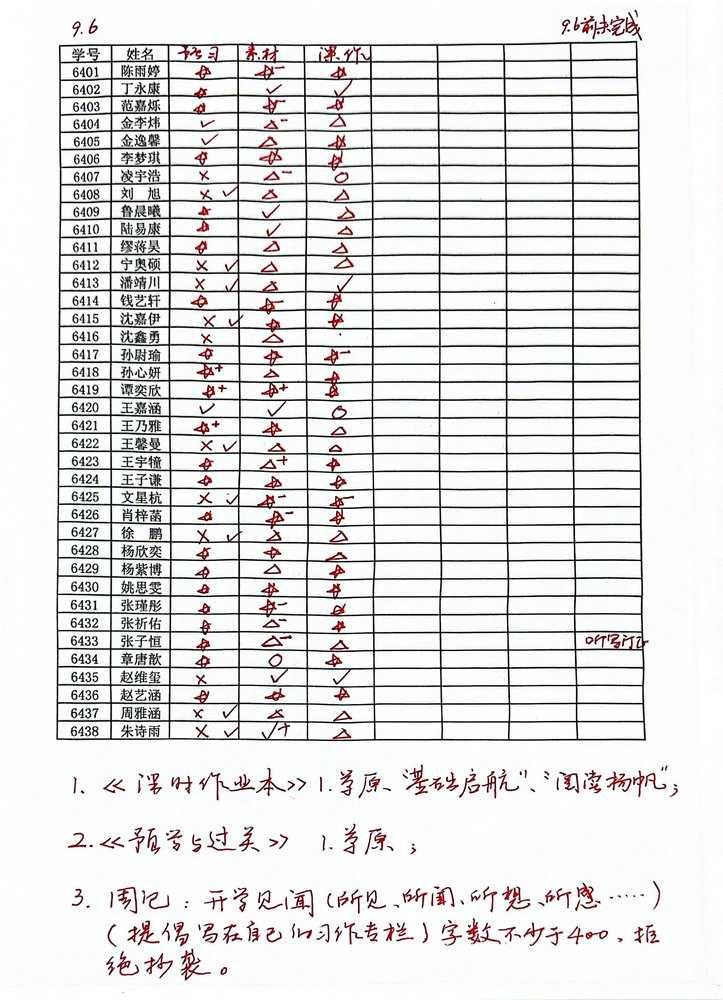 9.6 9.6前未完成
学号 姓名 预习 素材 课作
6401 陈雨婷 ☆ ☆- ☆
6402 丁永康 ☆ ✓ ✓
6403 范嘉烁 ☆ ☆- ☆
6404 金李炜 ✓ △- △
6405 金逸馨 ✓ △ ☆
6406 李梦琪 ☆ ☆ ☆
6407 凌宇浩 × △- ○
6408 刘旭 × ✓ △ △
6409 鲁晨曦 ☆ ✓ △
6410 陆易康 ☆ ✓ △
6411 缪蒋昊 ☆ △ △
6412 宁奥硕 × ✓ △ △
6413 潘靖川 × ✓ △ ✓
6414 钱艺轩 ☆ ☆- ☆
6415 沈嘉伊 × ✓ ☆ ☆
6416 沈鑫勇 × △
6417 孙尉瑜 ☆ ☆ ☆-
6418 孙心妍 ☆+ △ ☆
6419 谭奕欣 ☆+ ☆+ ☆
6420 王嘉涵 ✓ ✓ ○
6421 王乃雅 ☆+ ☆ △
6422 王馨曼 × ✓ △ △
6423 王宇犝 ☆ △+ ☆
6424 王子谦 ☆ ☆ ☆
6425 文星杭 × ✓ ☆- ☆-
6426 肖梓菡 ☆ ☆- ☆
6427 徐鹏 × ✓ △ △
6428 杨欣奕 ☆ ☆ △
6429 杨紫博 ☆ △ ☆
6430 姚思雯 ☆ ☆ ☆
6431 张瑾彤 ☆ ☆- ☆
6432 张祈佑 ☆ △- ☆
6433 张子恒 ☆ △- △ 听写订
6434 章唐歆 ☆ ○ ☆
6435 赵维玺 × ✓ ✓
6436 赵艺涵 ☆ ☆ ☆
6437 周雅涵 × ✓ △ △
6438 朱诗雨 × ✓ ✓+ △
1. 《课时作业本》1.草原、"基础启航"、"阅读扬帆";
2.《预学与过关》 1.草原;
3. 周记：开学见闻（所见、所闻、所想、所感……）
（提倡写在自己的习作专栏）字数不少于400、拒
绝抄袭。